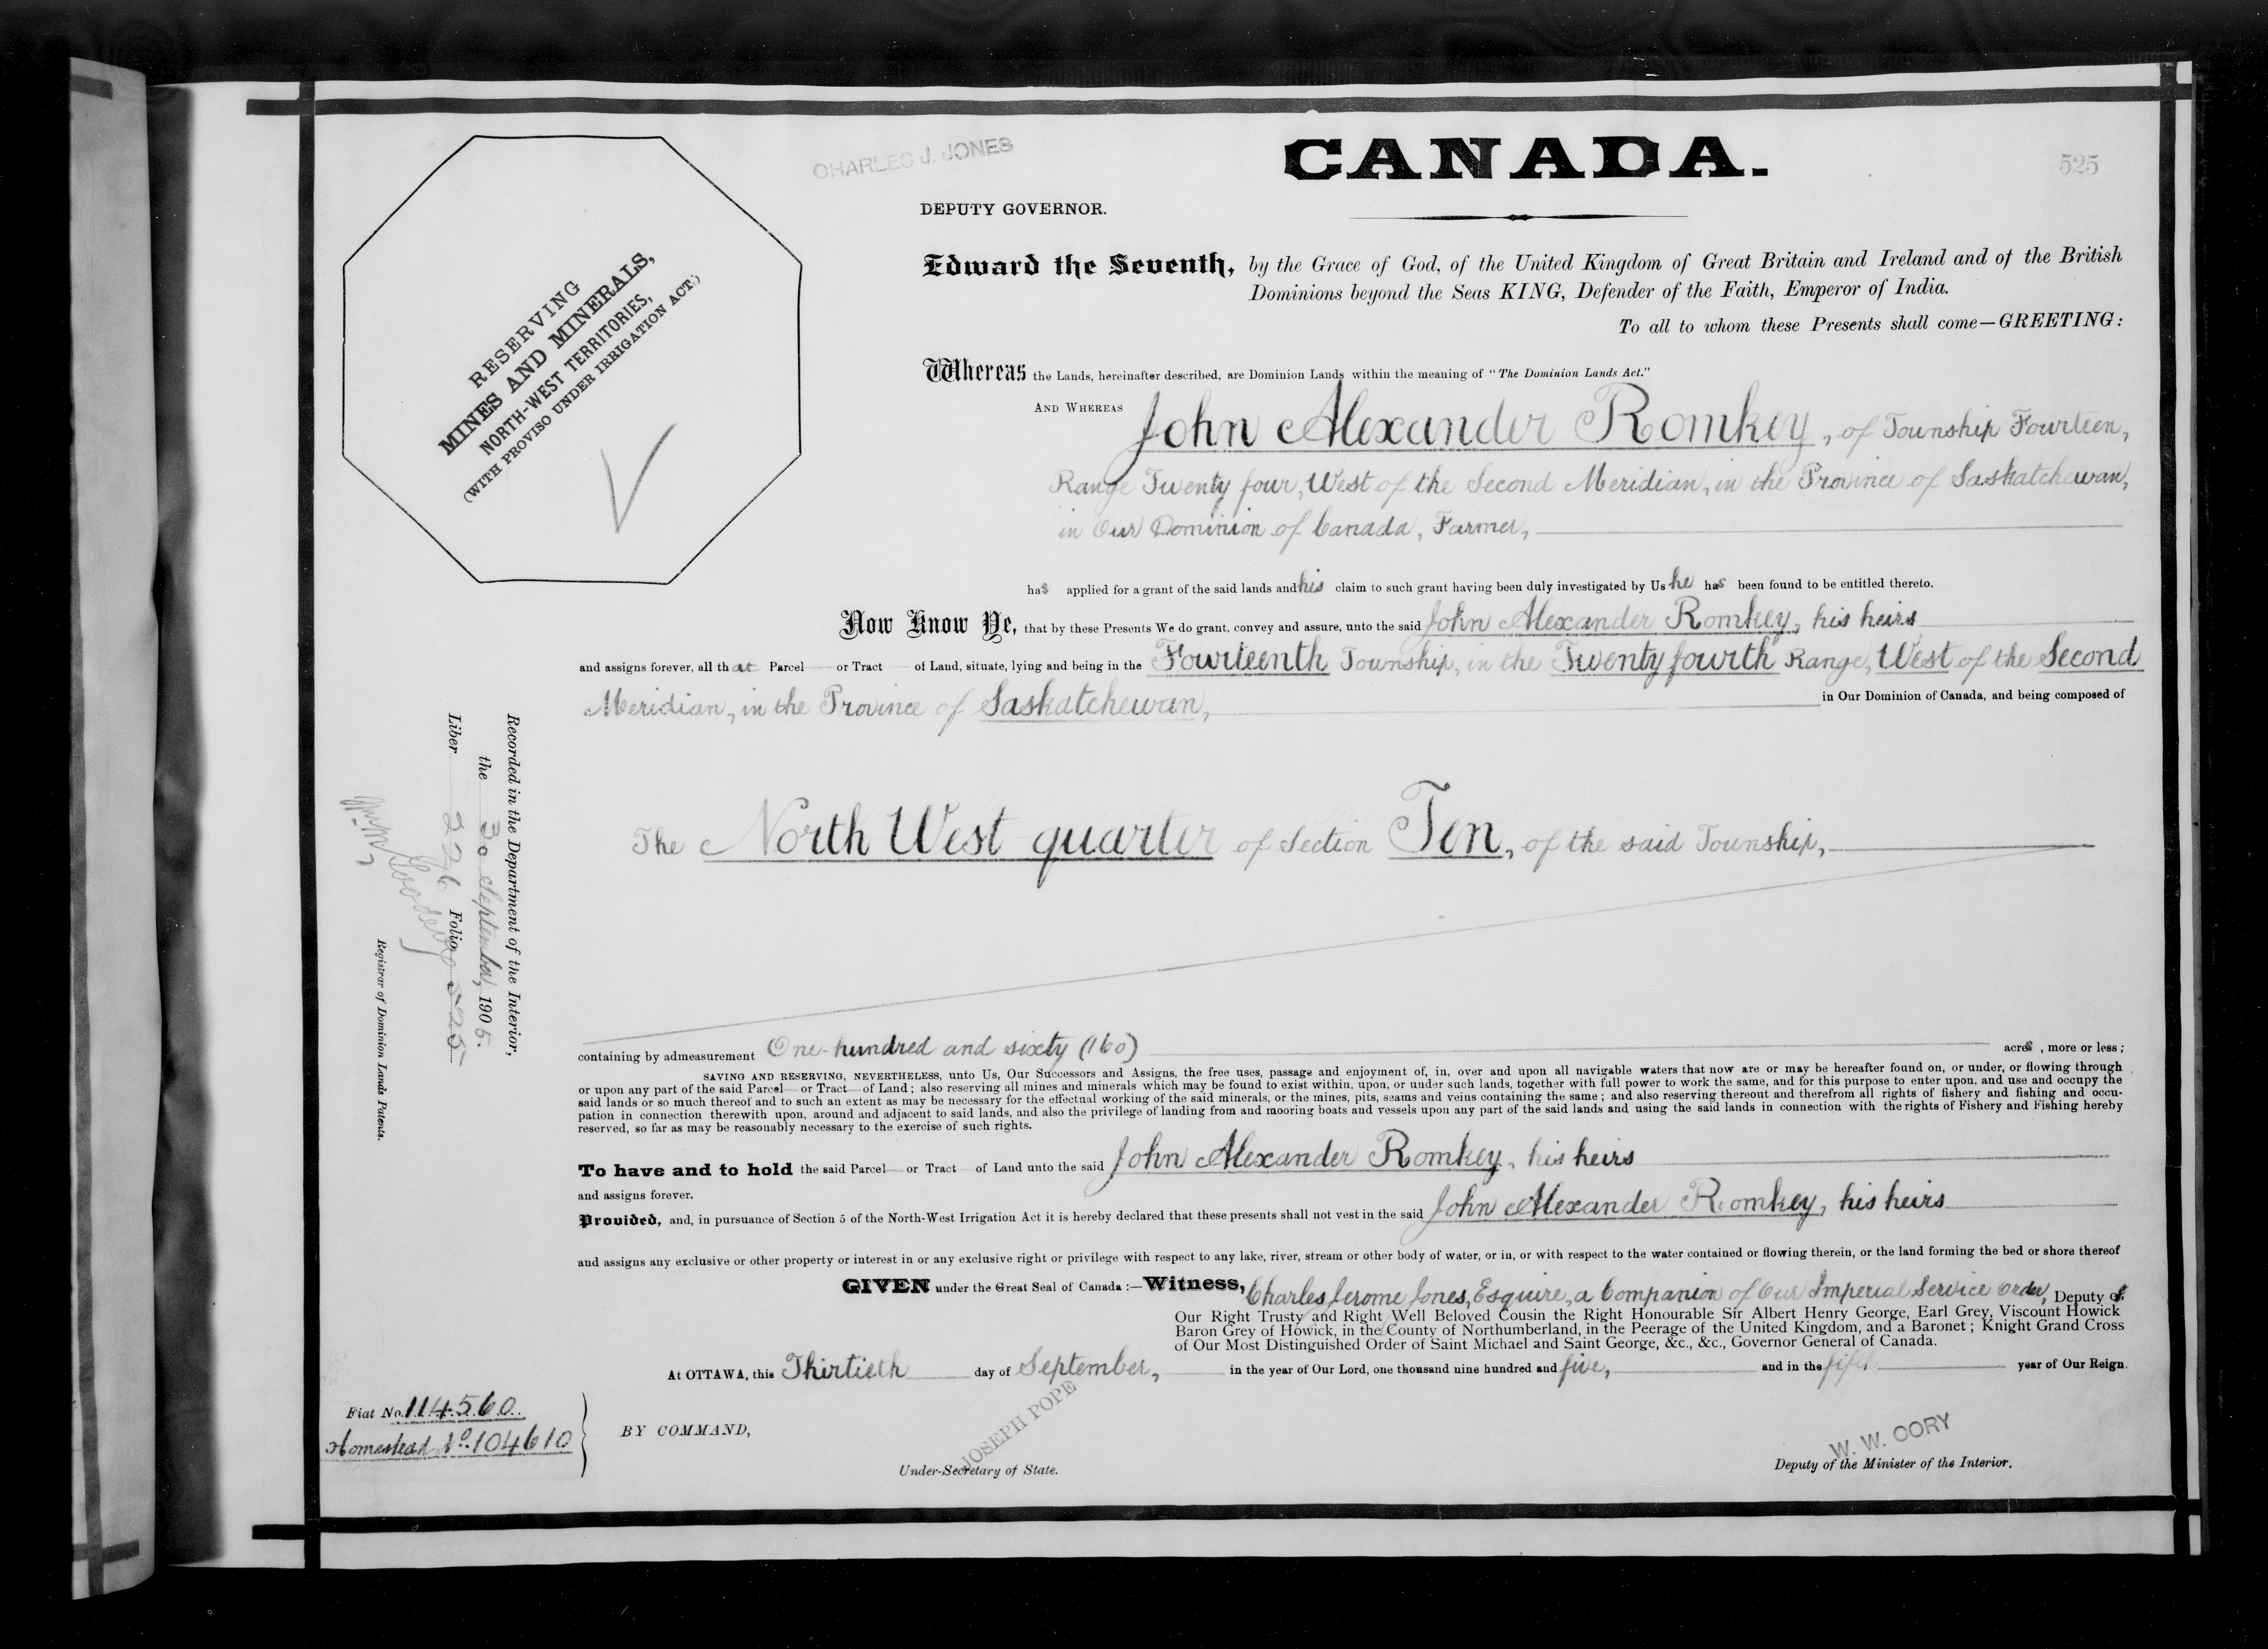 CHARLES J. JONES
CANADA.
525
DEPUTY GOVERNOR.
RESERVING
MINES AND MINERALS,
NORTH-WEST TERRITORIES,
(WITH PROVISO UNDER IRRIGATION ACT.)
Edward the Seventh, by the Grace of God, of the United Kingdom of Great Britain and Ireland and of the British
Dominions beyond the Seas KING, Defender of the Faith, Emperor of India.
To all to whom these Presents shall come—GREETING:
Whereas the Lands, hereinafter described, are Dominion Lands within the meaning of "The Dominion Lands Act."
AND WHEREAS John Alexander Romkey, of Township Fourteen,
Range Twenty four, West of the Second Meridian, in the Province of Saskatchewan,
in Our Dominion of Canada, Farmer,
has applied for a grant of the said lands and his claim to such grant having been duly investigated by Us he has been found to be entitled thereto.
Now Know Ye, that by these Presents We do grant, convey and assure, unto the said John Alexander Romkey, his heirs
and assigns forever, all that Parcel or Tract of Land, situate, lying and being in the Fourteenth Township, in the Twenty fourth Range, West of the Second
Meridian, in the Province of Saskatchewan, in Our Dominion of Canada, and being composed of
The North West quarter of Section Ten, of the said Township,
Recorded in the Department of the Interior,
the 30 September, 1905.
Liber 226 Folio 525
Registrar of Dominion Lands Patents.
containing by admeasurement One hundred and sixty (160) acres, more or less;
SAVING AND RESERVING, NEVERTHELESS, unto Us, Our Successors and Assigns, the free uses, passage and enjoyment of, in, over and upon all navigable waters that now are or may be hereafter found on, or under, or flowing through
or upon any part of the said Parcel or Tract of Land; also reserving all mines and minerals which may be found to exist within, upon, or under such lands, together with full power to work the same, and for this purpose to enter upon, and use and occupy the
said lands or so much thereof and to such an extent as may be necessary for the effectual working of the said minerals, or the mines, pits, seams and veins containing the same; and also reserving thereout and therefrom all rights of fishery and fishing and occu-
pation in connection therewith upon, around and adjacent to said lands, and also the privilege of landing from and mooring boats and vessels upon any part of the said lands and using the said lands in connection with the rights of Fishery and Fishing hereby
reserved, so far as may be reasonably necessary to the exercise of such rights.
To have and to hold the said Parcel or Tract of Land unto the said John Alexander Romkey, his heirs
and assigns forever.
Provided, and, in pursuance of Section 5 of the North-West Irrigation Act it is hereby declared that these presents shall not vest in the said John Alexander Romkey, his heirs
and assigns any exclusive or other property or interest in or any exclusive right or privilege with respect to any lake, river, stream or other body of water, or in, or with respect to the water contained or flowing therein, or the land forming the bed or shore thereof
GIVEN under the Great Seal of Canada:—Witness, Charles Jerome Jones, Esquire, a Companion of Our Imperial Service Order, Deputy of
Our Right Trusty and Right Well Beloved Cousin the Right Honourable Sir Albert Henry George, Earl Grey, Viscount Howick
Baron Grey of Howick, in the County of Northumberland, in the Peerage of the United Kingdom, and a Baronet; Knight Grand Cross
of Our Most Distinguished Order of Saint Michael and Saint George, &c., &c., Governor General of Canada.
At OTTAWA, this Thirtieth day of September, in the year of Our Lord, one thousand nine hundred and five, and in the fifth year of Our Reign.
Fiat No. 114560.
Homestead No. 104610
BY COMMAND,
JOSEPH POPE
Under-Secretary of State.
W. W. CORY
Deputy of the Minister of the Interior.